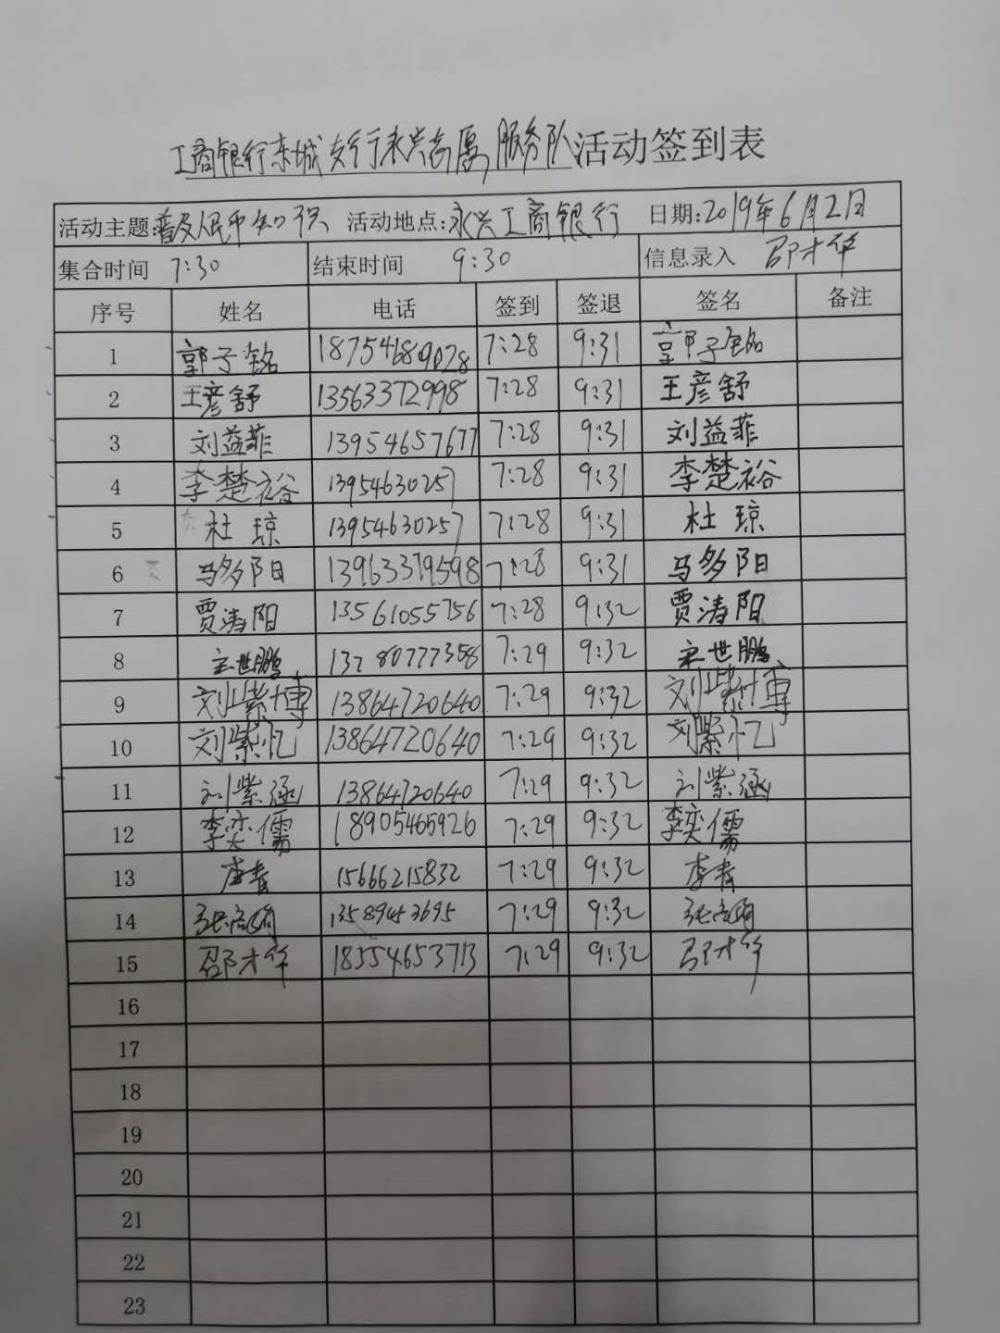 工商银行东城支行永兴志愿服务队活动签到表
活动主题:普及人民币知识 活动地点:永兴工商银行 日期:2019年6月2日
集合时间 7:30 结束时间 9:30 信息录入 邵才华
序号 姓名 电话 签到 签退 签名 备注
1 郭子铭 18754689028 7:28 9:31 郭子铭
2 王彦舒 13563372998 7:28 9:31 王彦舒
3 刘益菲 13954657677 7:28 9:31 刘益菲
4 李楚裕 13954630257 7:28 9:31 李楚裕
5 杜琼 13954630257 7:28 9:31 杜琼
6 马多阳 13963379598 7:28 9:31 马多阳
7 贾涛阳 13561055756 7:28 9:32 贾涛阳
8 宋世鹏 13280777358 7:29 9:32 宋世鹏
9 刘紫博 13864720640 7:29 9:32 刘紫博
10 刘紫忆 13864720640 7:29 9:32 刘紫忆
11 刘紫涵 13864720640 7:29 9:32 刘紫涵
12 李奕儒 18905465926 7:29 9:32 李奕儒
13 15666215832 7:29 9:32
14 13589453695 7:29 9:32
15 邵才华 18554653713 7:29 9:32 邵才华
16
17
18
19
20
21
22
23